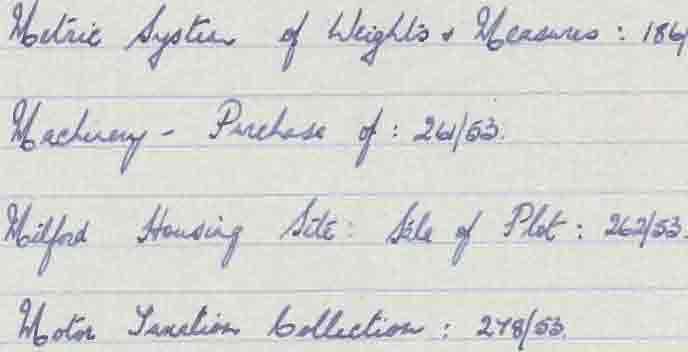 Metric System of Weights & Measures : 186/
Machinery - Purchase of : 261/53.
Milford Housing Site : Sale of Plot : 262/53.
Motor Taxation Collection : 278/53.